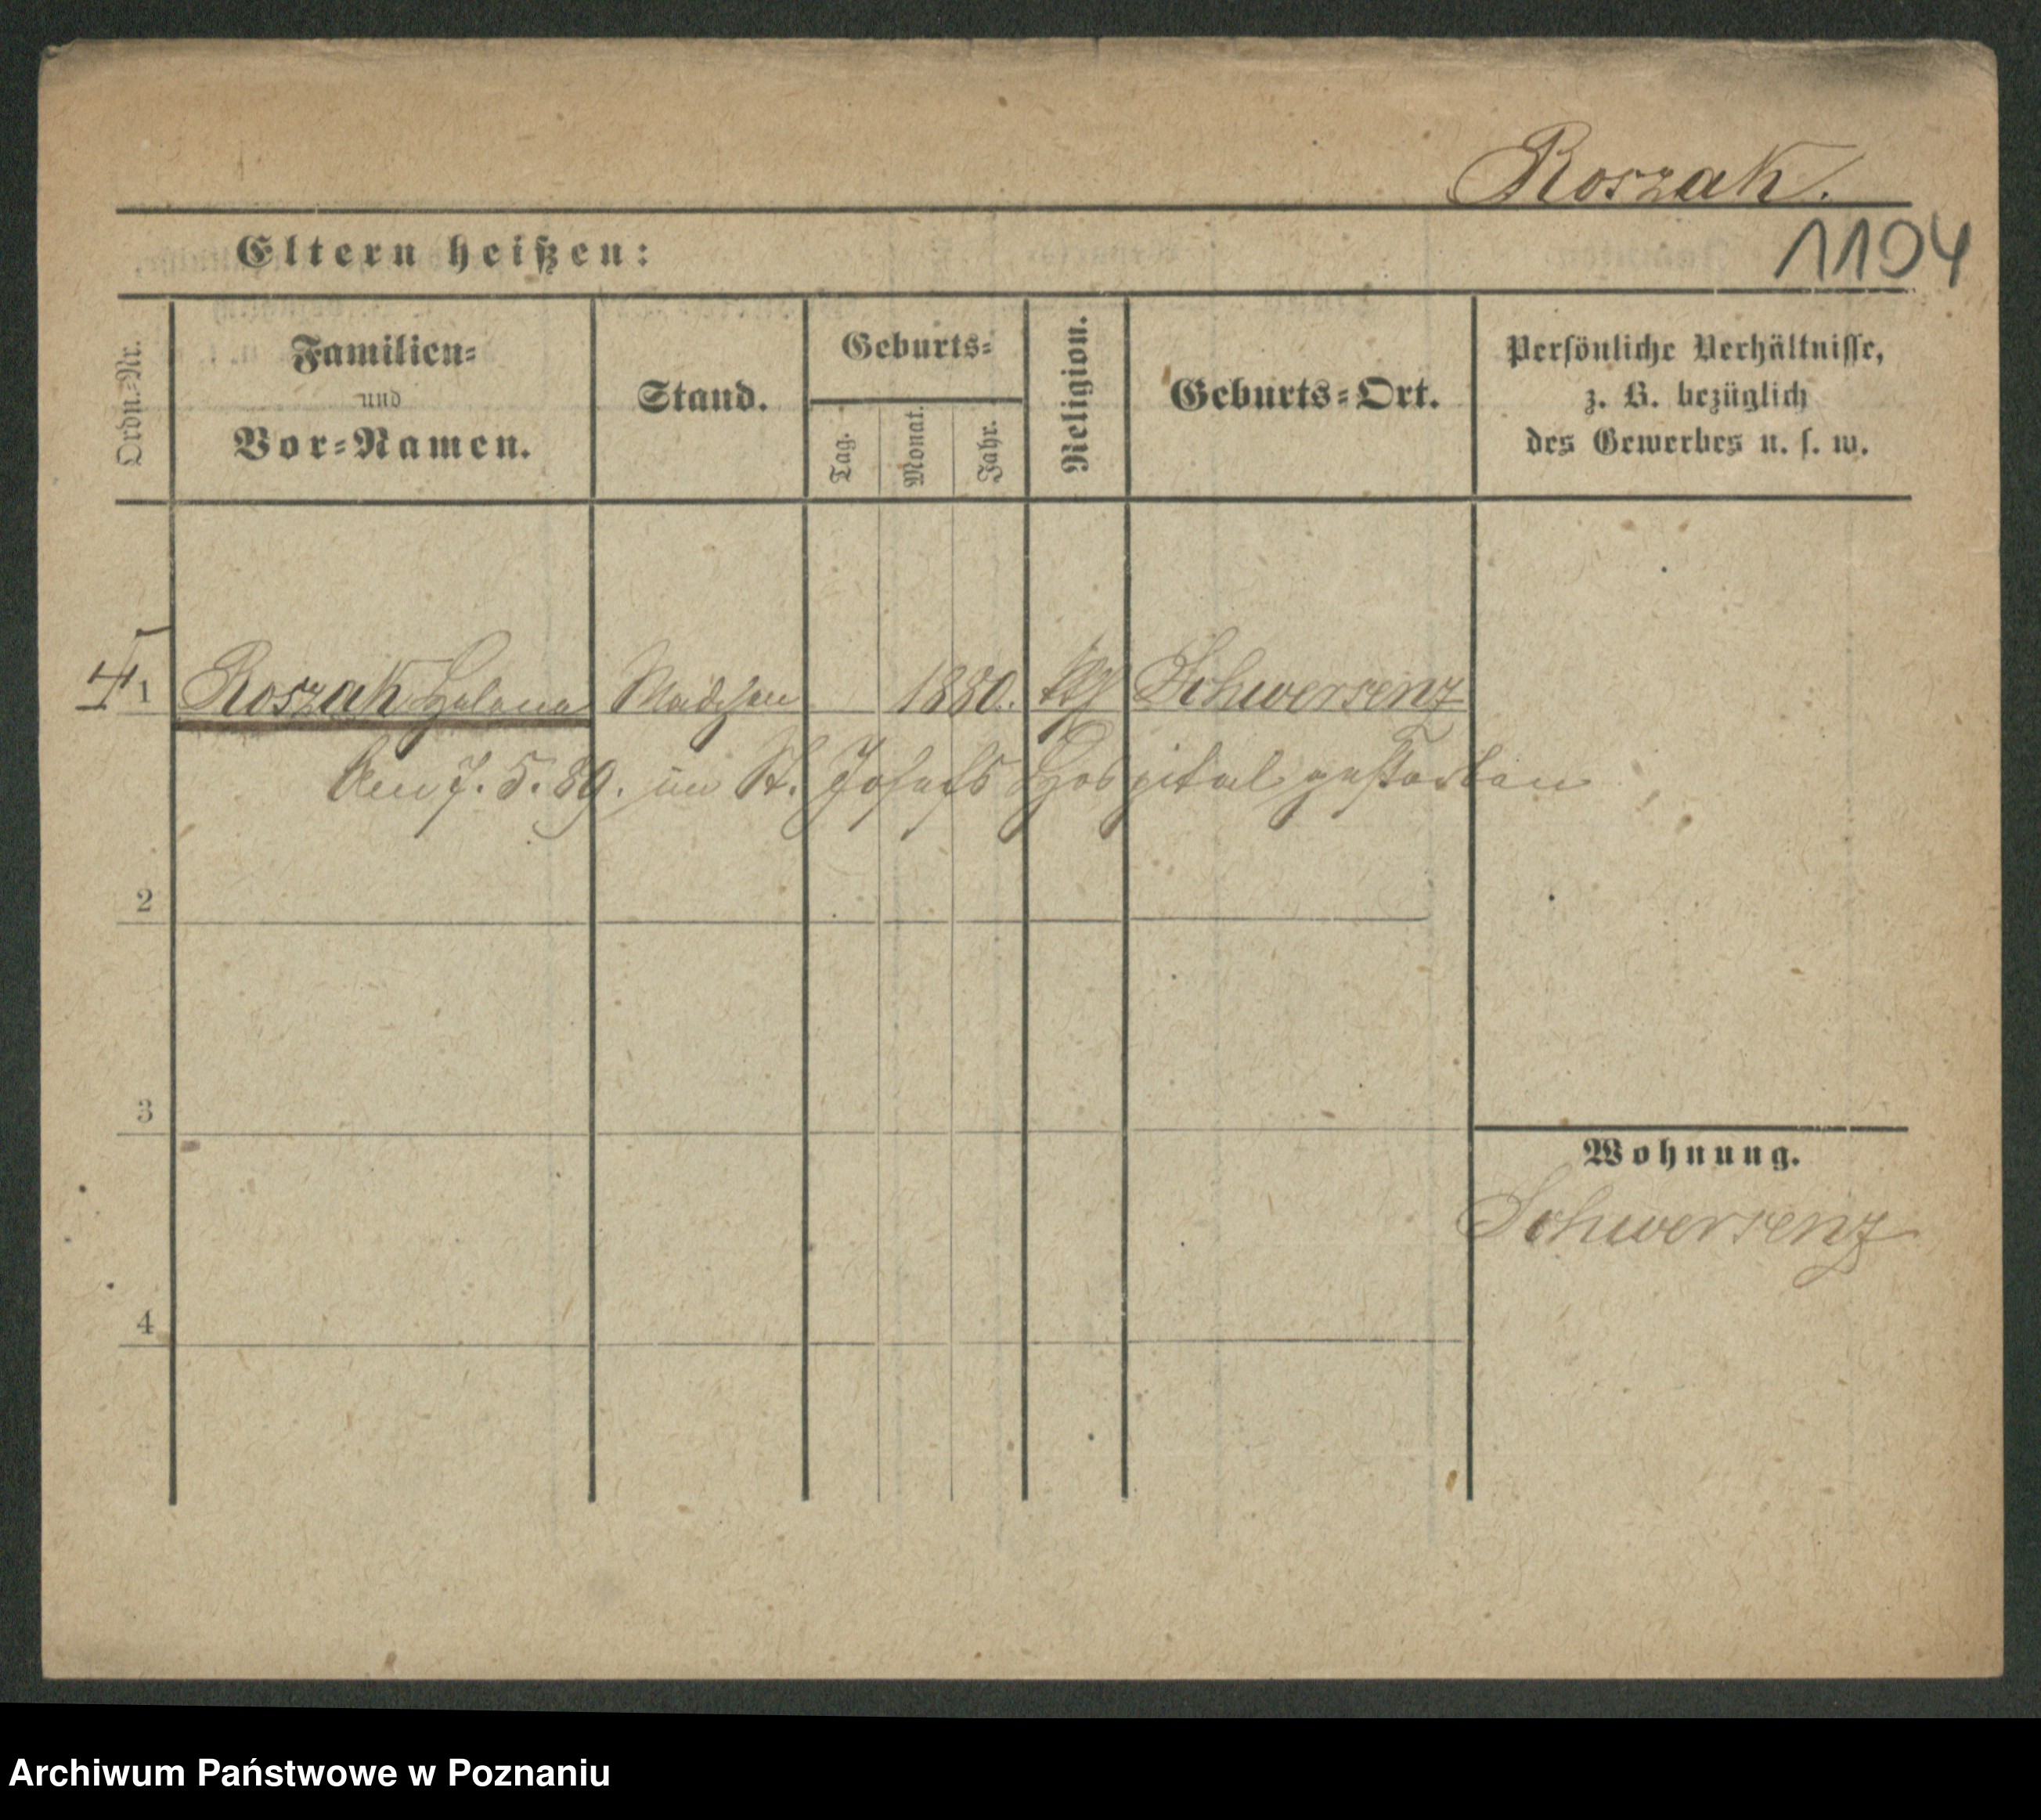 Roszak.
1104
Eltern heißen:
Ordn.=Nr.
Familien=
und
Vor=Namen.
Stand.
Geburts=
Tag.
Monat.
Jahr.
Religion.
Geburts=Ort.
Persönliche Verhältnisse,
z. B. bezüglich
des Gewerbes u. s. w.
1 Roszak Helena Mädchen 1880. kth Schwersenz
Am 7. 5. 89. im St. Josefs Hospital gestorben
2
3
4
Wohnung.
Schwersenz
Archiwum Państwowe w Poznaniu